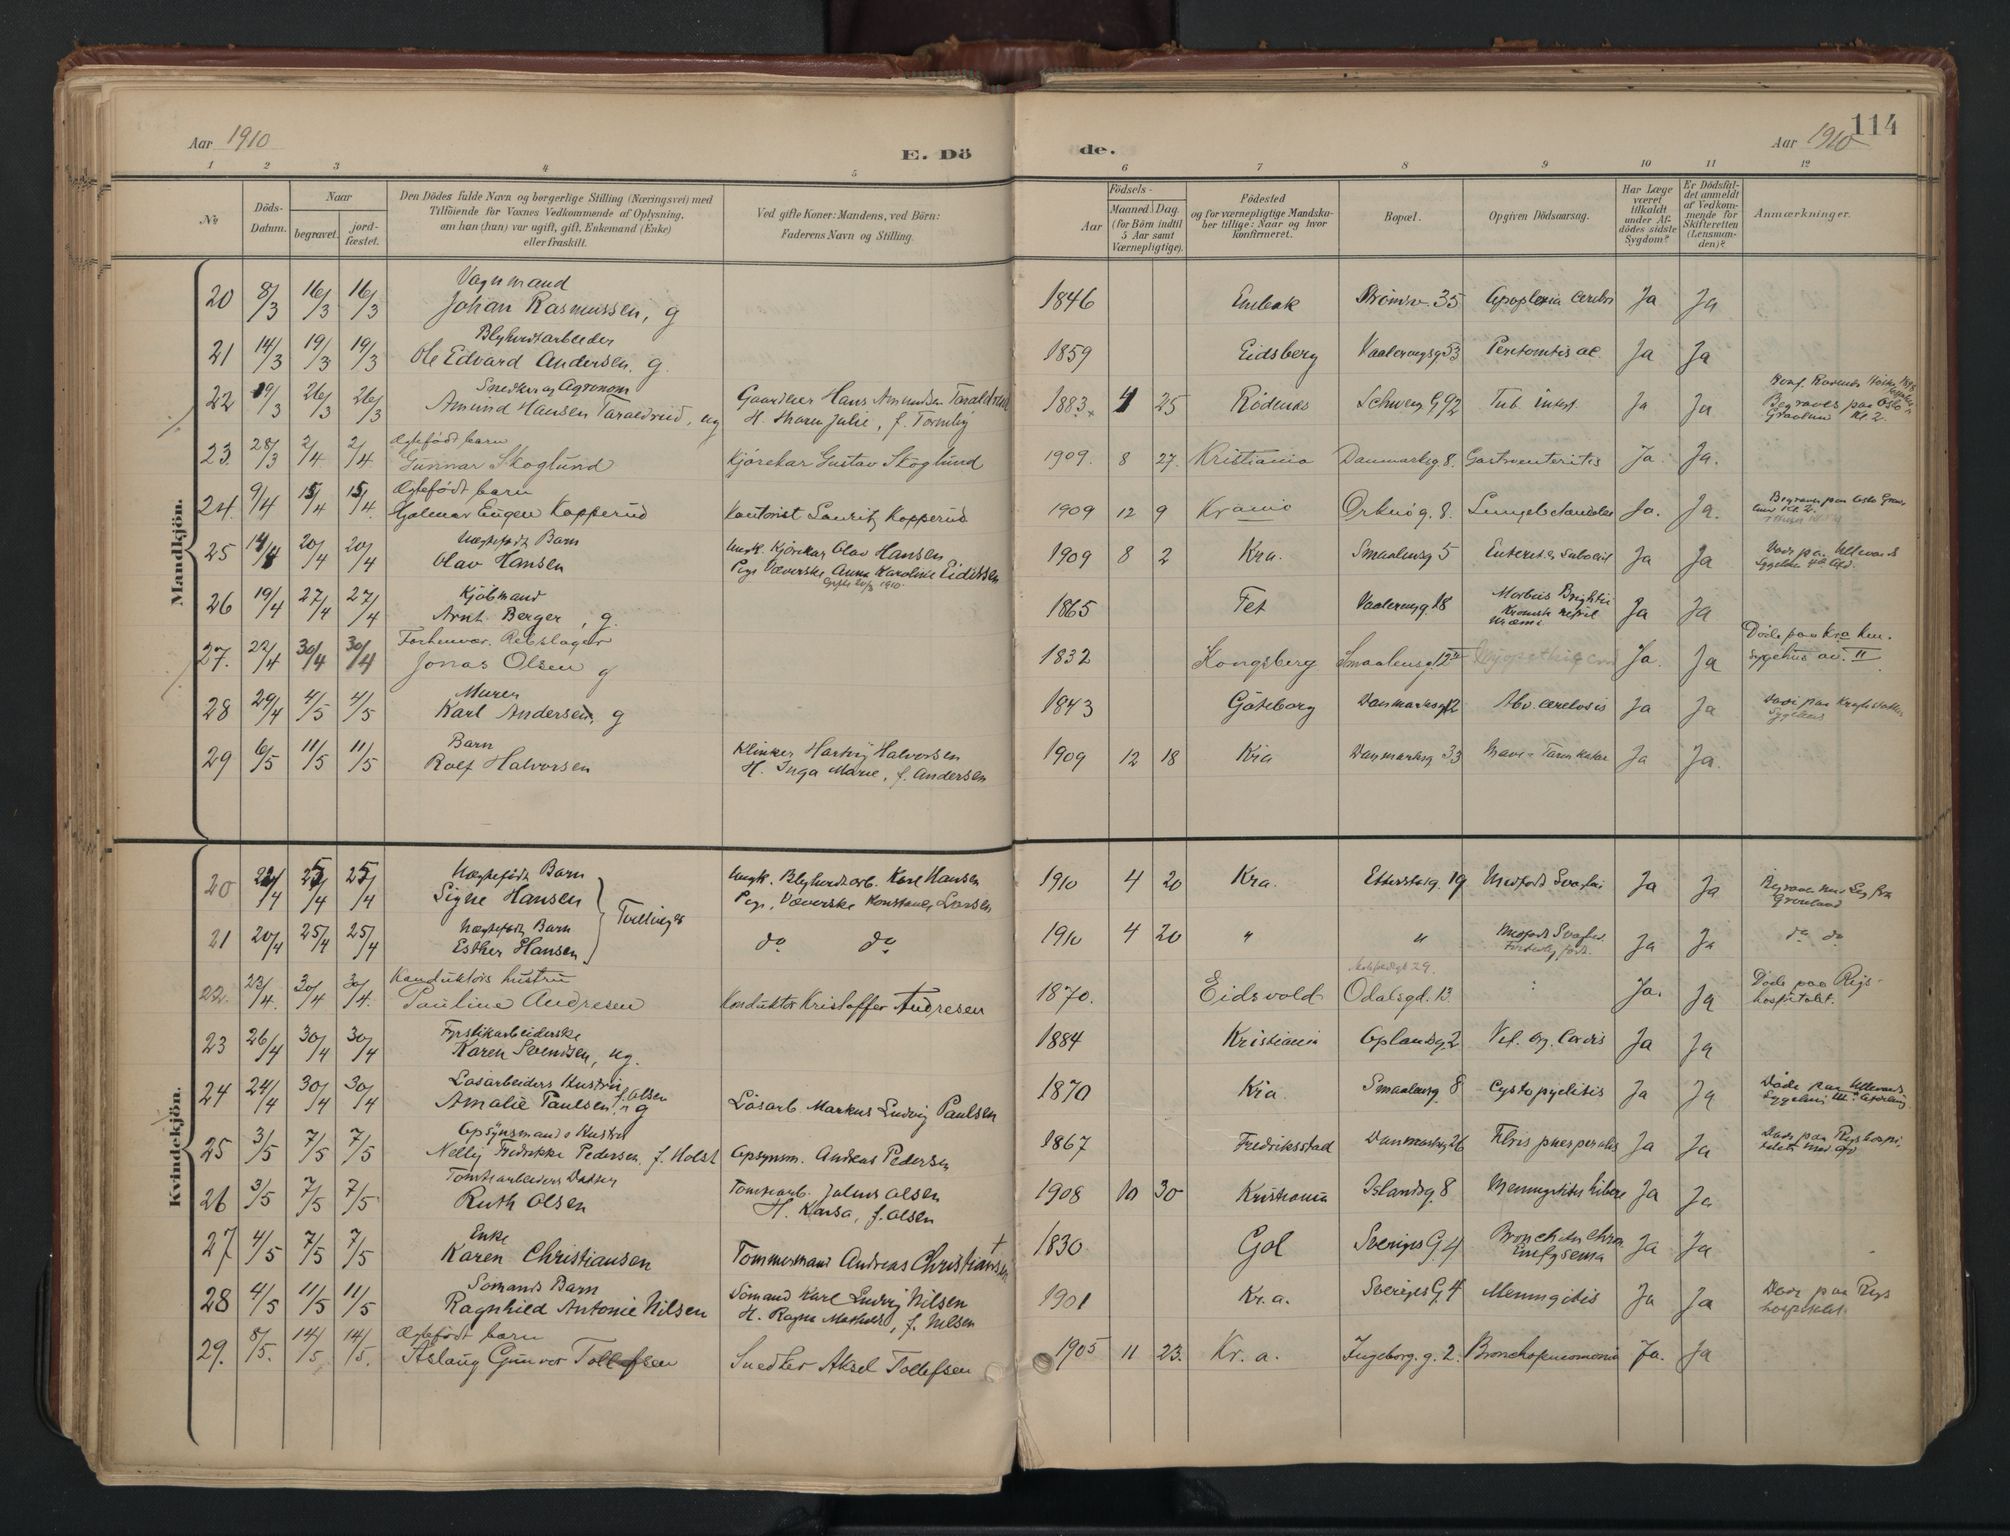 114
Aar 1910
E. Dö
de.
Aar 1910
1 2 3 4 5 6 7 8 9 10 11 12
№ Döds-Datum. Naar begravet. jord-fæstet. Den Dödes fulde Navn og borgerlige Stilling (Næringsvei) med Tilföiende for Voxnes Vedkommende af Oplysning, om han (hun) var ugift, gift, Enkemand (Enke) eller fraskilt. Ved gifte Koner: Mandens, ved Börn: Faderens Navn og Stilling. Födsels- Aar Maaned Dag. (for Börn indtil 5 Aar samt Værnepligtige). Födested og for værnepligtige Mandskaber tillige: Naar og hvor konfirmeret. Bopæl. Opgiven Dödsaarsag. Har Læge været tilkaldt under Afdödes sidste Sygdom? Er Dödsfaldet anmeldt af Vedkommende for Skifteretten (Lensmanden)? Anmærkninger.
Mandkjön.
Vognmand
20 8/3 16/3 16/3 Johan Rasmussen, g 1846 Enebak Strömsv. 35 Apoplexia cerebri Ja Ja
21 14/3 19/3 19/3 Ole Edvard Andersen, g. 1859 Eidsberg Vaalerengg 53 Ja Ja
Snedker og Agronom
22 19/3 26/3 26/3 Amund Hansen Taraldrud, ug Gaardeier Hans Amundsen Taraldrud 1883 4 25 Rödenes Schweig. 92 Tub. intest. Ja Ja
Begraves paa Oslo
Ægtefödt barn
23. 28/3 2/4 2/4. Gunnar Skoglund Kjörekar Gustav Skoglund 1909. 8 27. Kristiania Danmarksg. 8. Gastroenteritis Ja. Ja.
Ægtefödt barn
24. 9/4 15/4 15/4. Hjalmar Eugen Kopperud Kontorist Lauritz Kopperud 1909 12 9 Kr.ania Orknög. 8. Ja. Ja.
Uægtefödt Barn
25 14/4 20/4 20/4 Olav Hansen Ungk. Kjörekar Olav Hansen 1909 8 2 Kra. Smaalensg 5 Ja Ja
Pige Væverske Anna Karoline Eidissen
Kjöbmand
26 19/4 27/4 27/4 Arnt Berger, g. 1865 Fet Vaalerengg. 18 Morbus Brightii Ja Ja
Forhenvær. Rebslager
27. 22/4 30/4 30/4 Jonas Olsen g 1832 Kongsberg Smaalensg. 12 Ja. Ja Döde paa Kra kom. sygehus av. II
Murer
28 29/4 4/5 4/5 Karl Andersen, g 1843 Göteborg Danmarksg 12 Ja Ja
Barn
29 6/5 11/5 11/5 Rolf Halvorsen Klinker Hartvig Halvorsen 1909 12 18 Kra Danmarksg 33 Mave- Tarmkatar Ja Ja.
H. Inga Marie, f. Andersen
Kvindekjön.
Uægtefödt Barn
20 22/4 25/4 25/4 Signe Hansen Tvillinger Ungk. Blyhvidtarb. Karl Hansen 1910 4 20 Kra. Etterstadg. 19 Medfödt Svaghet Ja Ja
Pige, Væverske Konstance Larsen
Uægtefödt Barn
21 20/4 25/4 25/4 Esther Hansen do do 1910 4 20 " " Medfödt Svaghed. Ja Ja do do
Konduktörs hustru
22. 23/4. 30/4 30/4. Pauline Andresen Konduktör Kristoffer Andresen 1870. Eidsvold Odalsgd. 13. Ja. Ja Döde paa Rigshospitalet.
Fyrstikarbeiderske
23 26/4 30/4 30/4 Karen Svendsen, ug. 1884 Kristiania Oplandsg. 2 Vit. org. cordis Ja Ja
Lösarbeiders Hustru
24 24/4 30/4 30/4 Amalie Paulsen, f. Olsen g Lösarb. Markus Ludvig Paulsen 1870 Kra. Smaalensg 8 Cystopyelitis Ja Ja Döde paa Ullevaals
Opsynsmands Hustru
25 3/5 7/5 7/5 Nelly Fredrikke Pedersen, f. Holst Opsynsm. Andreas Pedersen 1867 Fredriksstad Danmarksg 26 Febris puerperalis Ja Ja
Tomtearbeiders Datter
26 3/5 7/5 7/5 Ruth Olsen Tomtearb. Julius Olsen 1908 10 30 Kristiania Islandsg. 8 Ja Ja
Enke
27 4/5 7/5 7/5 Karen Christiansen Tömmermand Andreas Christiansen † 1830 Gol Sverigesg. 4 Ja Ja
Sömands Barn
28 4/5 11/5 11/5 Ragnhild Antonie Nilsen Sömand Karl Ludvig Nilsen 1901 Kr.a. Sverigesg. 4 Meningitis Ja Ja Död paa Rigshospitalet
Ægtefödt barn
29. 8/5. 14/5 14/5. Aslaug Gunvor Tollefsen Snedker Aksel Tollefsen 1905 11 23. Kr. a. Ingeborg. g. 2. Bronchopneumonia Ja. Ja